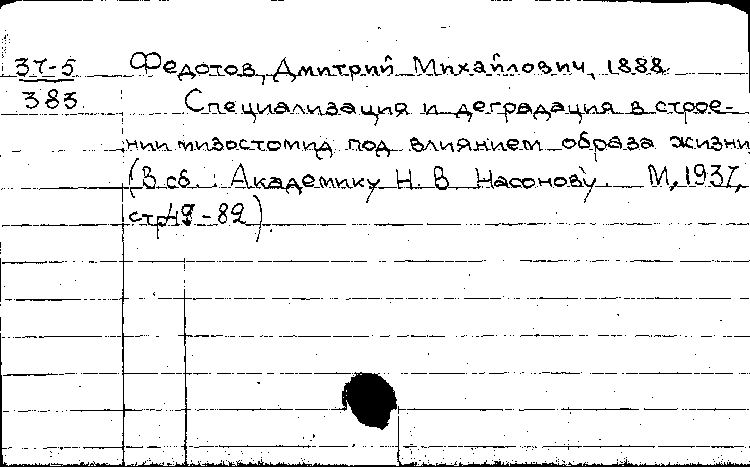 37-5 Федотов, Дмитрий Михайлович, 1888
383 Специализация и деградация в строе-
нии мизостомид под влиянием образа жизни
(В сб.: Академику Н. В. Насонову. М, 1937,
стр. -82).